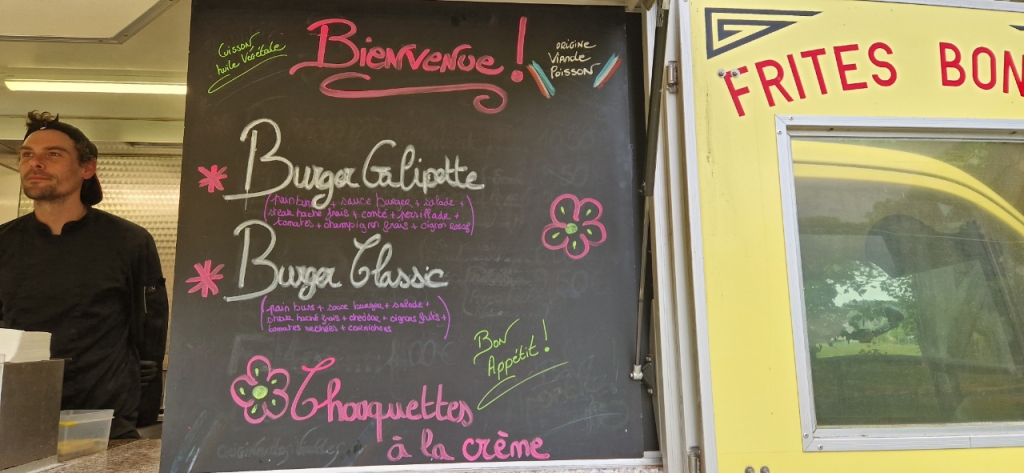 Cuisson
huile Végétale
Bienvenue !
ORIGINE
Viande
Poisson
Burger Galipette
(pain buns + sauce burger + salade +
steak haché frais + comté + persillade +
tomates + champignon frais + oignon rouge)
Burger Classic
(pain buns + sauce burger + salade +
steak haché frais + cheddar + oignons frits +
tomates séchées + cornichons)
Bon
Appétit !
Choaquettes
à la crème
FRITES BON